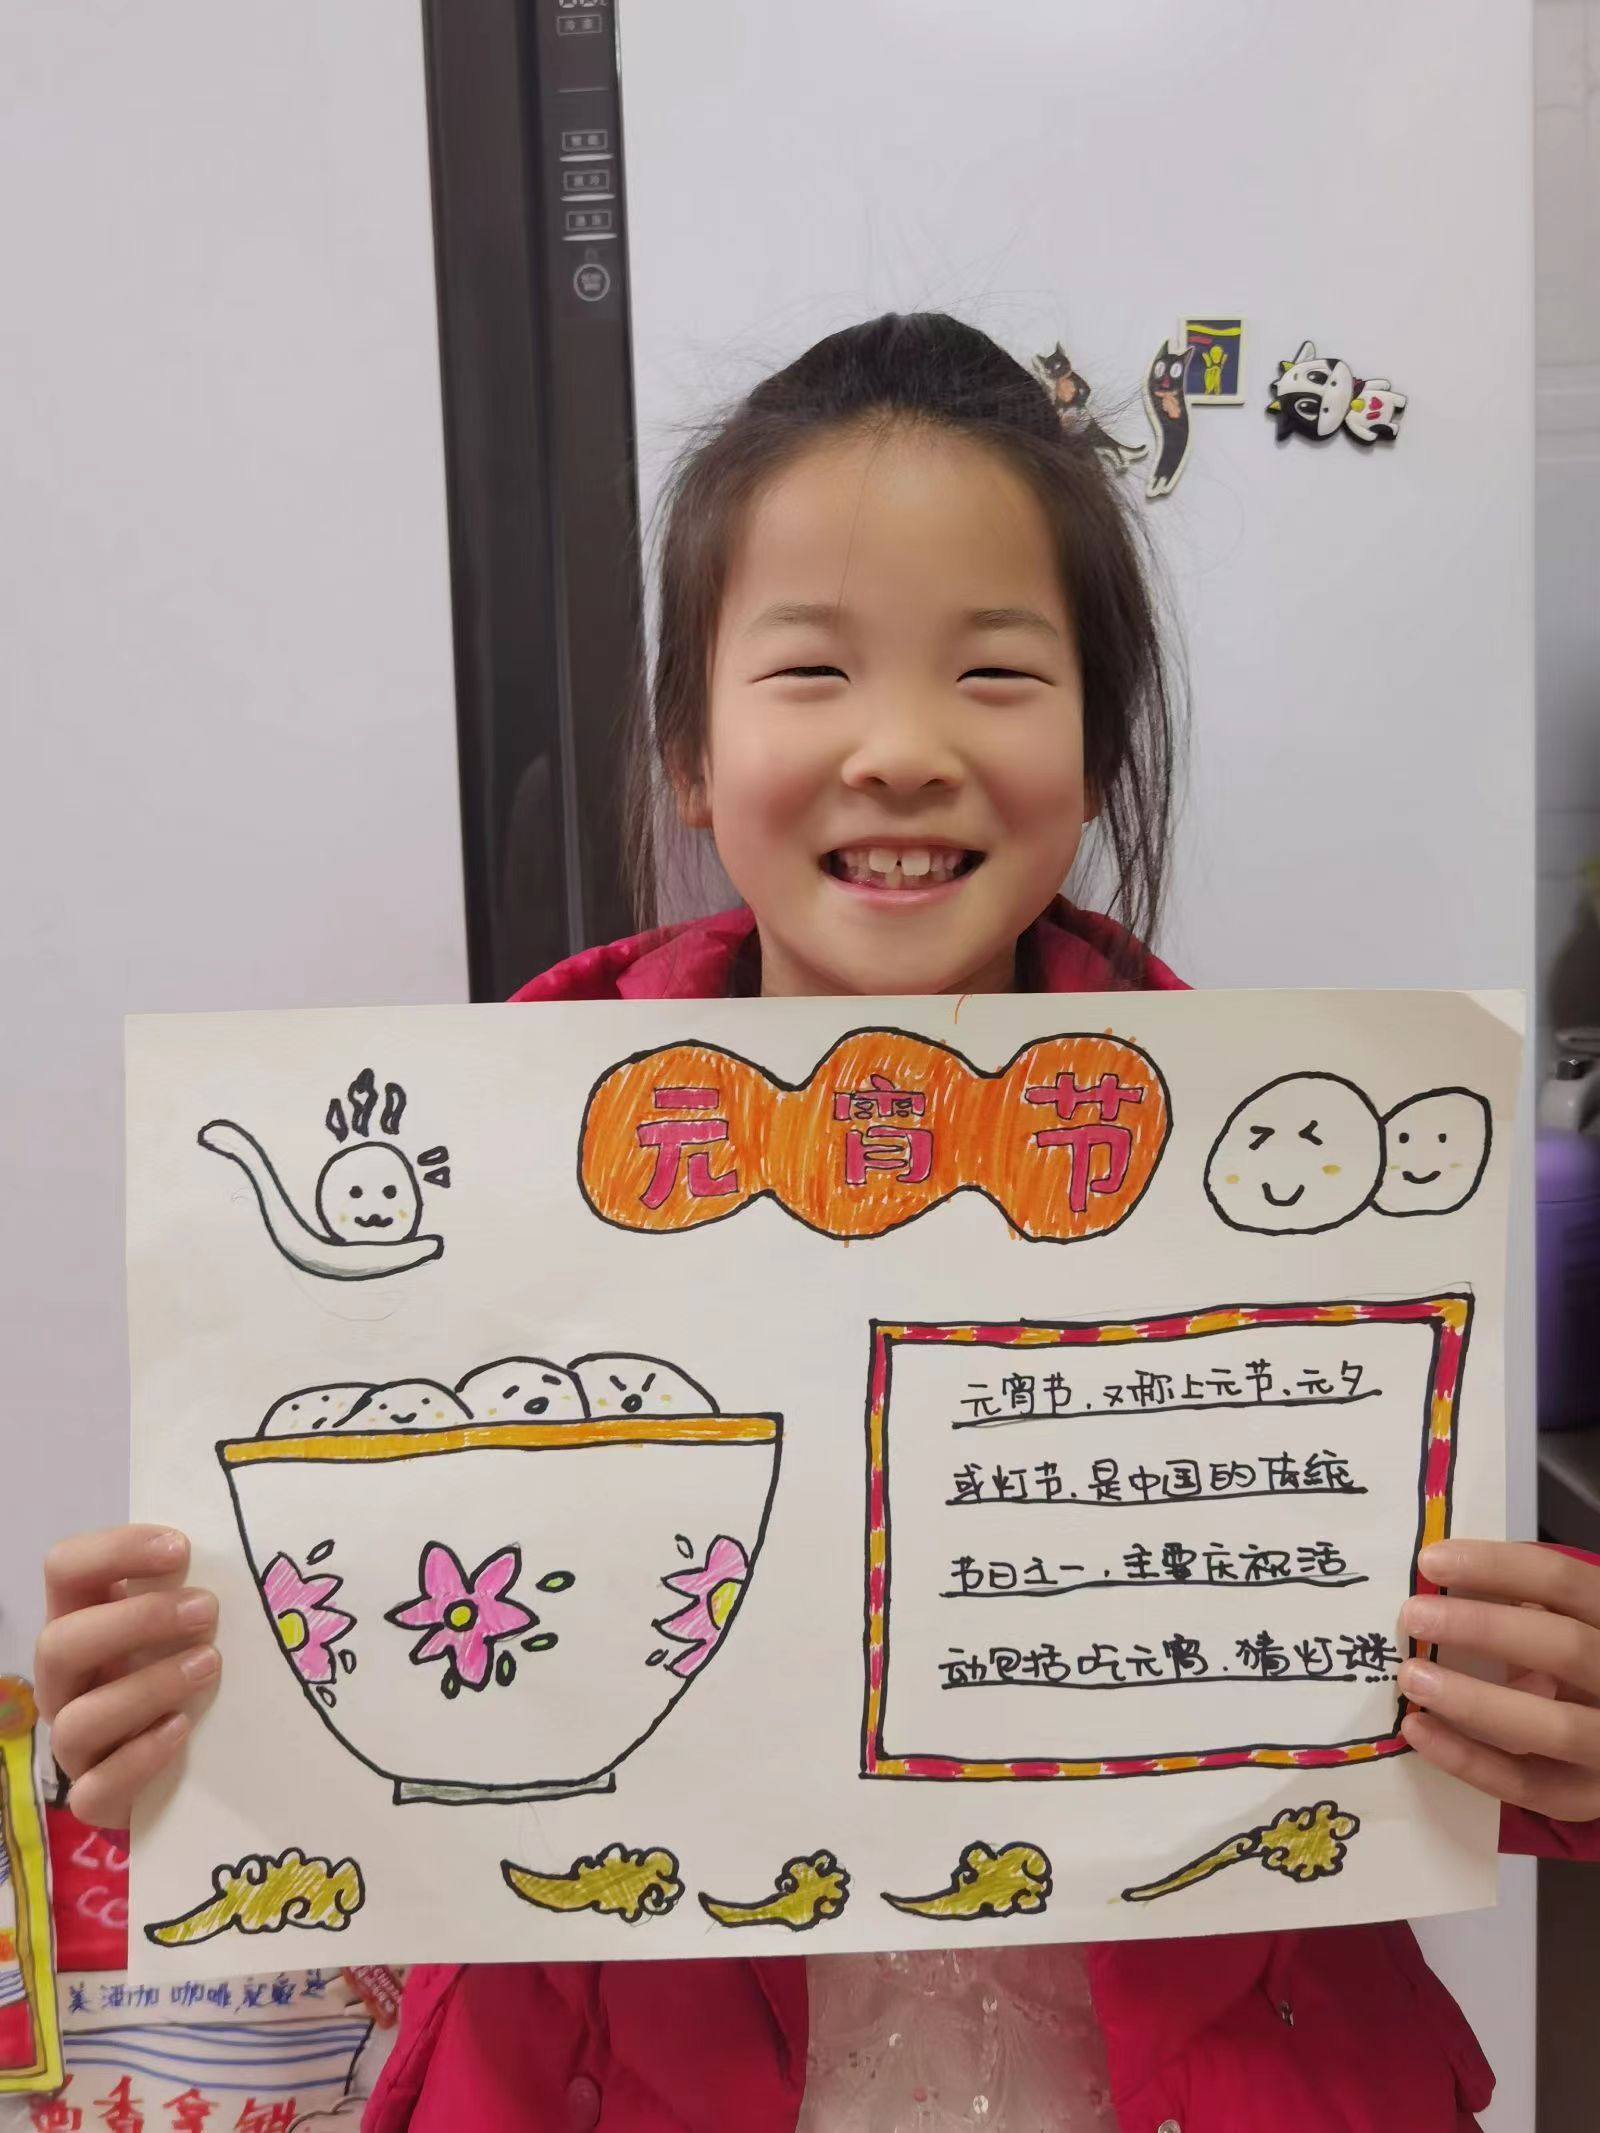 元宵节
元宵节，又称上元节、元夕
或灯节，是中国的传统
节日之一，主要庆祝活
动包括吃元宵、猜灯谜……
美酒加咖啡，就爱这
酱香拿铁